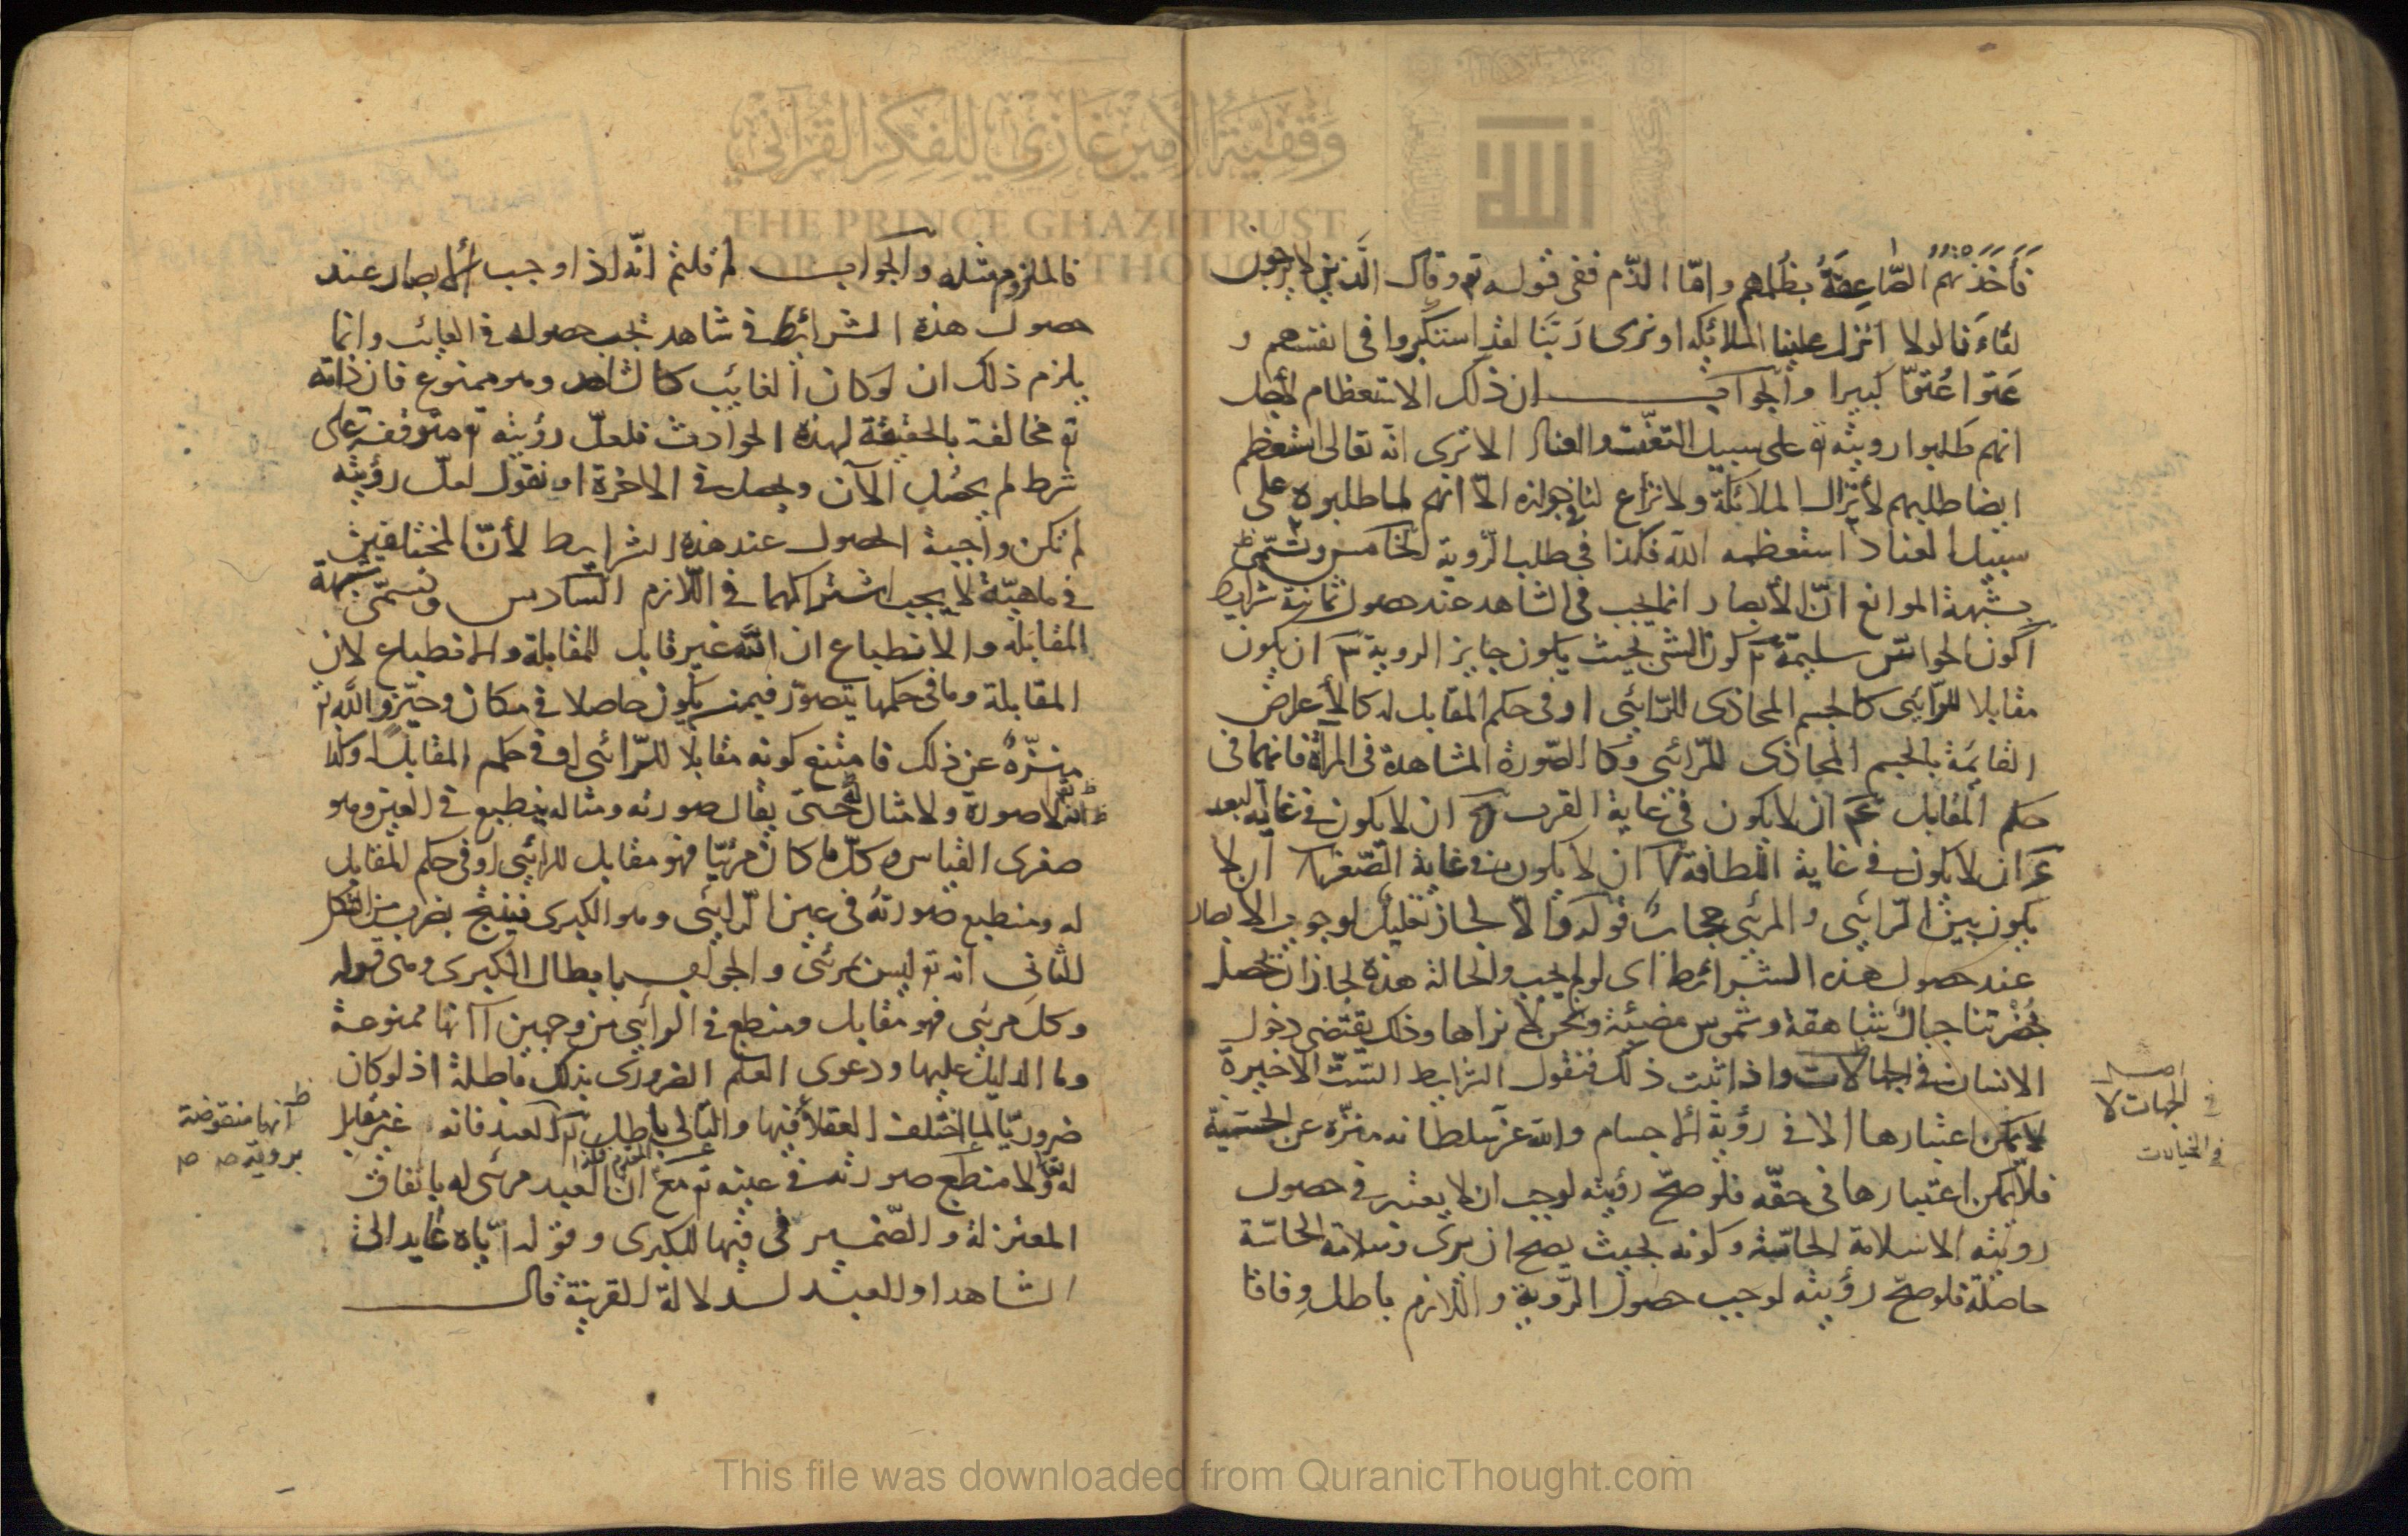 فَأَخَذَتْهُمُ الصَّاعِقَةُ بظُلمهم وامّا الذّم ففى قوله تع وقال الَّذين لا يرجون
لقاءَنا لولا انزل علينا الملائكة او نرى رَبَّنا لقد استكبروا فى انفسهم و
عَتوا عُتوّا كبيرا والجواب ان ذلك الاستعظام لأجل
انهم طلبوا رويته تع على سبيل التعنّت والعناد الا ترى انّه تعالى استعظم
ايضا طلبهم لأنزال الملائكة ولا نزاع لنا فى جوازه الّا انهم لما طلبوه على
سبيل العناد استعظمه اللّه فكذا فى طلب الرّوية الخامس وتسمّى
بشبهة الموانع انّ الأبصار انما يجب فى الشاهد عند حصول ثمانية شرايط
ا كون الحواسّ سليمة ٢ كون الشى بحيث يكون جايز الروية ٣ ان يكون
مقابلا للرّائى كالجسم المحاذى للرّائى او فى حكم المقابل له كالأعراض
القائمة بالجسم المحاذى للرّائى وكالصّورة المشاهدة فى المرآة فانهما فى
حكم المقابل ان لا يكون فى غاية القرب ان لا يكون فى غاية البعد
ان لا يكون فى غاية اللّطافة ان لا يكون فى غاية الصّغر ان لا
يكون بين الرّائى والمرئى حجاب قوله والّا لجاز تعليل لوجوب الابصار
عند حصول هذه الشرائط اى لو لم يجب والحالة هذه لجاز ان تحصل
بحُضْرتنا جبال شاهقة وشموس مضيئة ونحن لا نراها وذلك يقتضى دخول
الانسان فى الجهالات واذا ثبت ذلك فنقول الشرايط الستّ الاخيرة
لا يمكن اعتبارها الا فى رؤية الاجسام واللّه عزّ سلطانه منزّه عن الجسمية
فلا يمكن اعتبارها فى حقّه فلو صحّ رؤيته لوجب ان لا يعتبر فى حصول
رويته الا سلامة الحاسّة وكونه بحيث يصح ان يرى وسلامة الحاسّة
حاصلة فلو صحّ رؤيته لوجب حصول الرّوية واللّازم باطل وفاقا
فى الجهات لا
فى الخيالات
فالملزوم مثله والجواب لم قلتم انّه اذا وجب الابصار عند
حصول هذه الشرائط فى شاهد تجب حصوله فى الغائب وانما
يلزم ذلك ان لو كان الغائب كالشاهد وهو ممنوع فان ذاته
تع مخالفة بالحقيقة لهذه الحوادث فلعلّ رؤيته تع متوقفة على
شرط لم يحصل الآن ويحصل فى الاخرة او نقول لعلّ رؤيته
لم تكن واجبة الحصول عند هذه الشرايط لأنّ المختلفين
فى ماهيّة لا يجب اشتراكهما فى اللّازم السّادس وتسمّى شبهة
المقابلة والانطباع ان اللّه غير قابل للمقابلة والانطباع لان
المقابلة وما فى حكمها يتصوّر فيمن يكون حاصلا فى مكان وحيّز واللّه تع
منزّه عن ذلك فامتنع كونه مقابلا للرّائى او فى حكم المقابل وكذا
انّه لا صورة ولا مثال له حتى يقال صورته ومثاله ينطبع فى العين وهو
صغرى القياس وكلّ ما كان مرئيّا فهو مقابل للرائى او فى حكم المقابل
له ومنطبع صورته فى عين الرّائى وهو الكبرى فينتج بضرب من الشكل
الثانى انه تع ليس بمرئىّ والجواب بابطال الكبرى وهى قوله
وكل مرئى فهو مقابل ومنطبع فى الرائى من وجهين ا انها ممنوعة
وما الدليل عليها ودعوى العلم الضرورى بذلك باطلة اذ لو كان
ضروريّا لما اختلف العقلاء فيها والتالى باطل فالمقدم كذا العبد فانه غير مقابل
له تع ولا منطبع صورته فى عينه تع مع انّ العبد مرئى له باتفاق
المعتزلة والضّمير فى فيها للكبرى وقوله ايّاه عايد الى
الشاهد او للعبد لدلالة القرينة قال
انها منقوضة
برويته
وقفية الأمير غازي للفكر القرآني
THE PRINCE GHAZI TRUST
FOR QUR'ANIC THOUGHT
This file was downloaded from QuranicThought.com